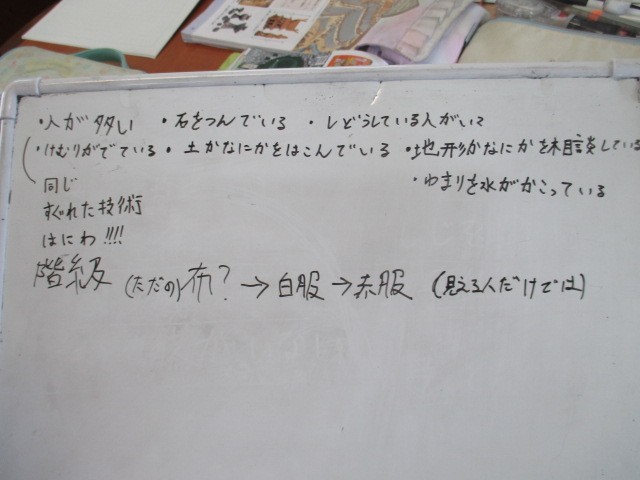 ・人が多い ・石をつんでいる ・しどうしている人がいて
・けむりがでている ・土かなにかをはこんでいる ・地形かなにかを相談している
同じ ・ゆまりを水がかこっている
すぐれた技術
はにわ!!!!
階級 (ただの)布?→白服→赤服 (見える人だけでは)